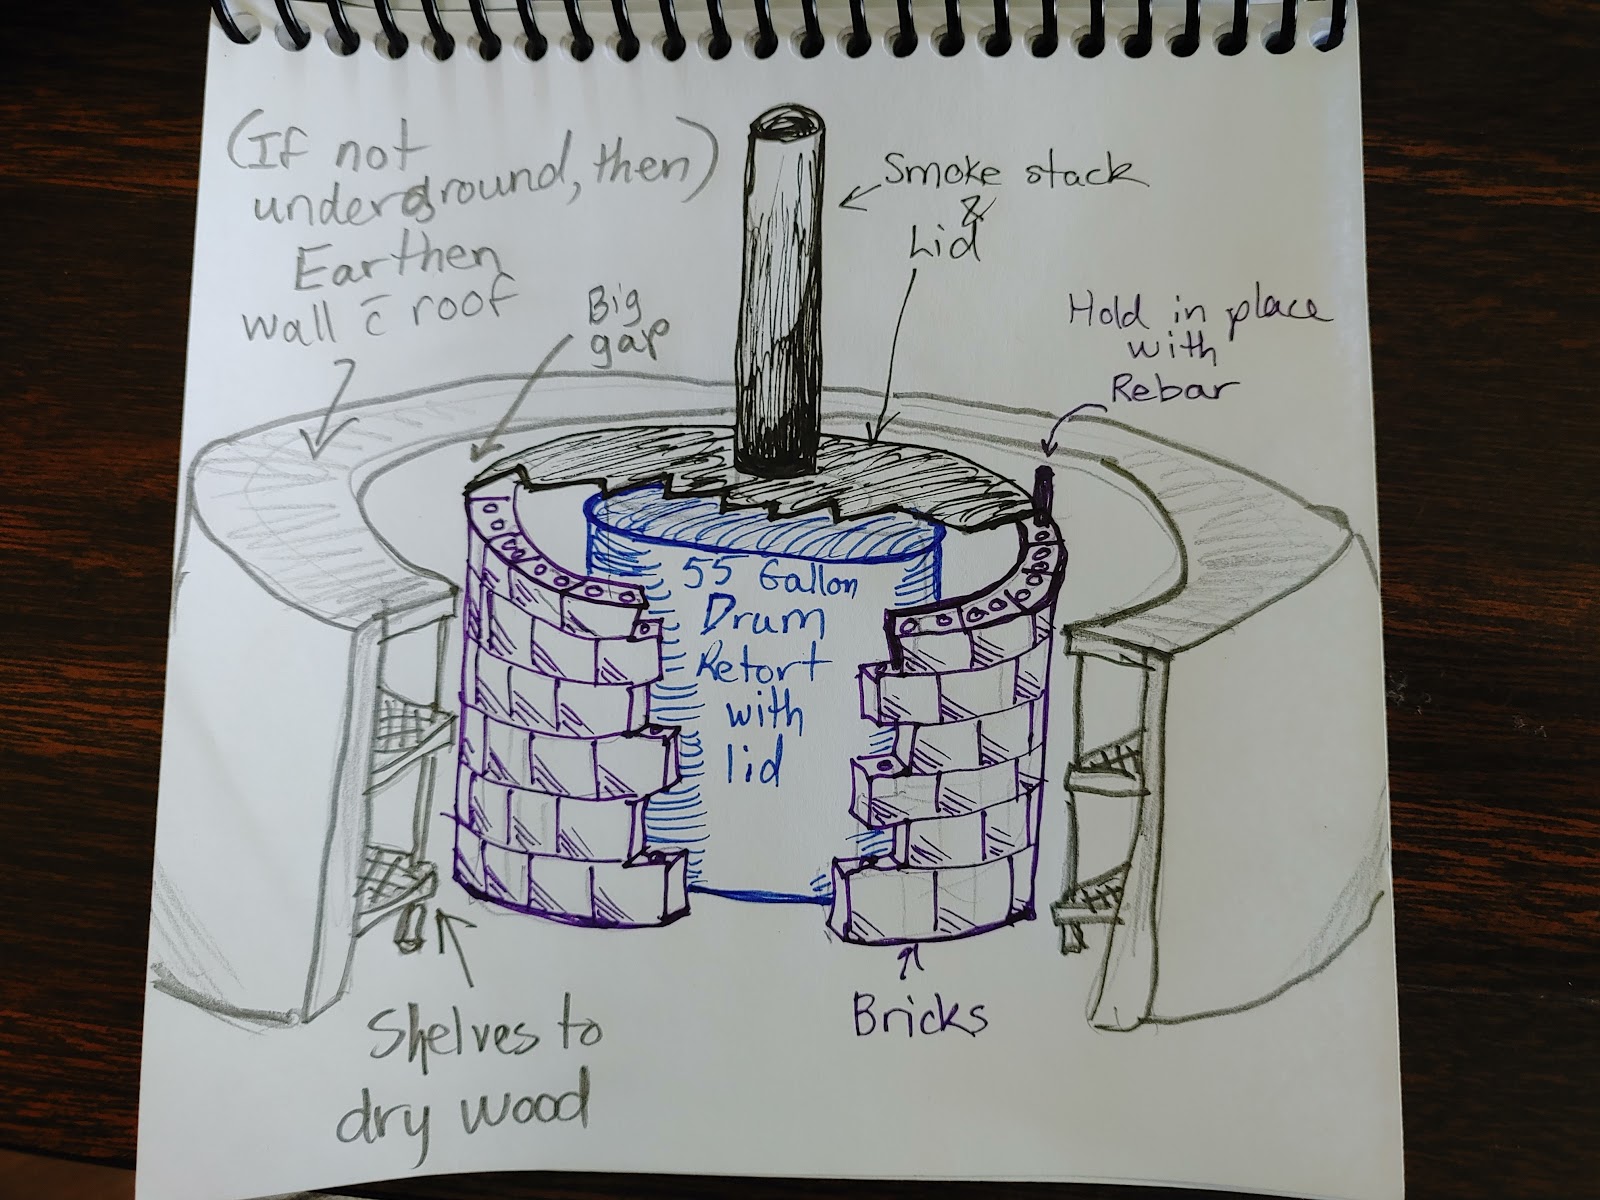 (If not
underground, then)
Earthen
wall c̄ roof
Big
gap
Smoke stack
&
Lid
Hold in place
with
Rebar
55 Gallon
Drum
Retort
with
lid
Shelves to
dry wood
Bricks